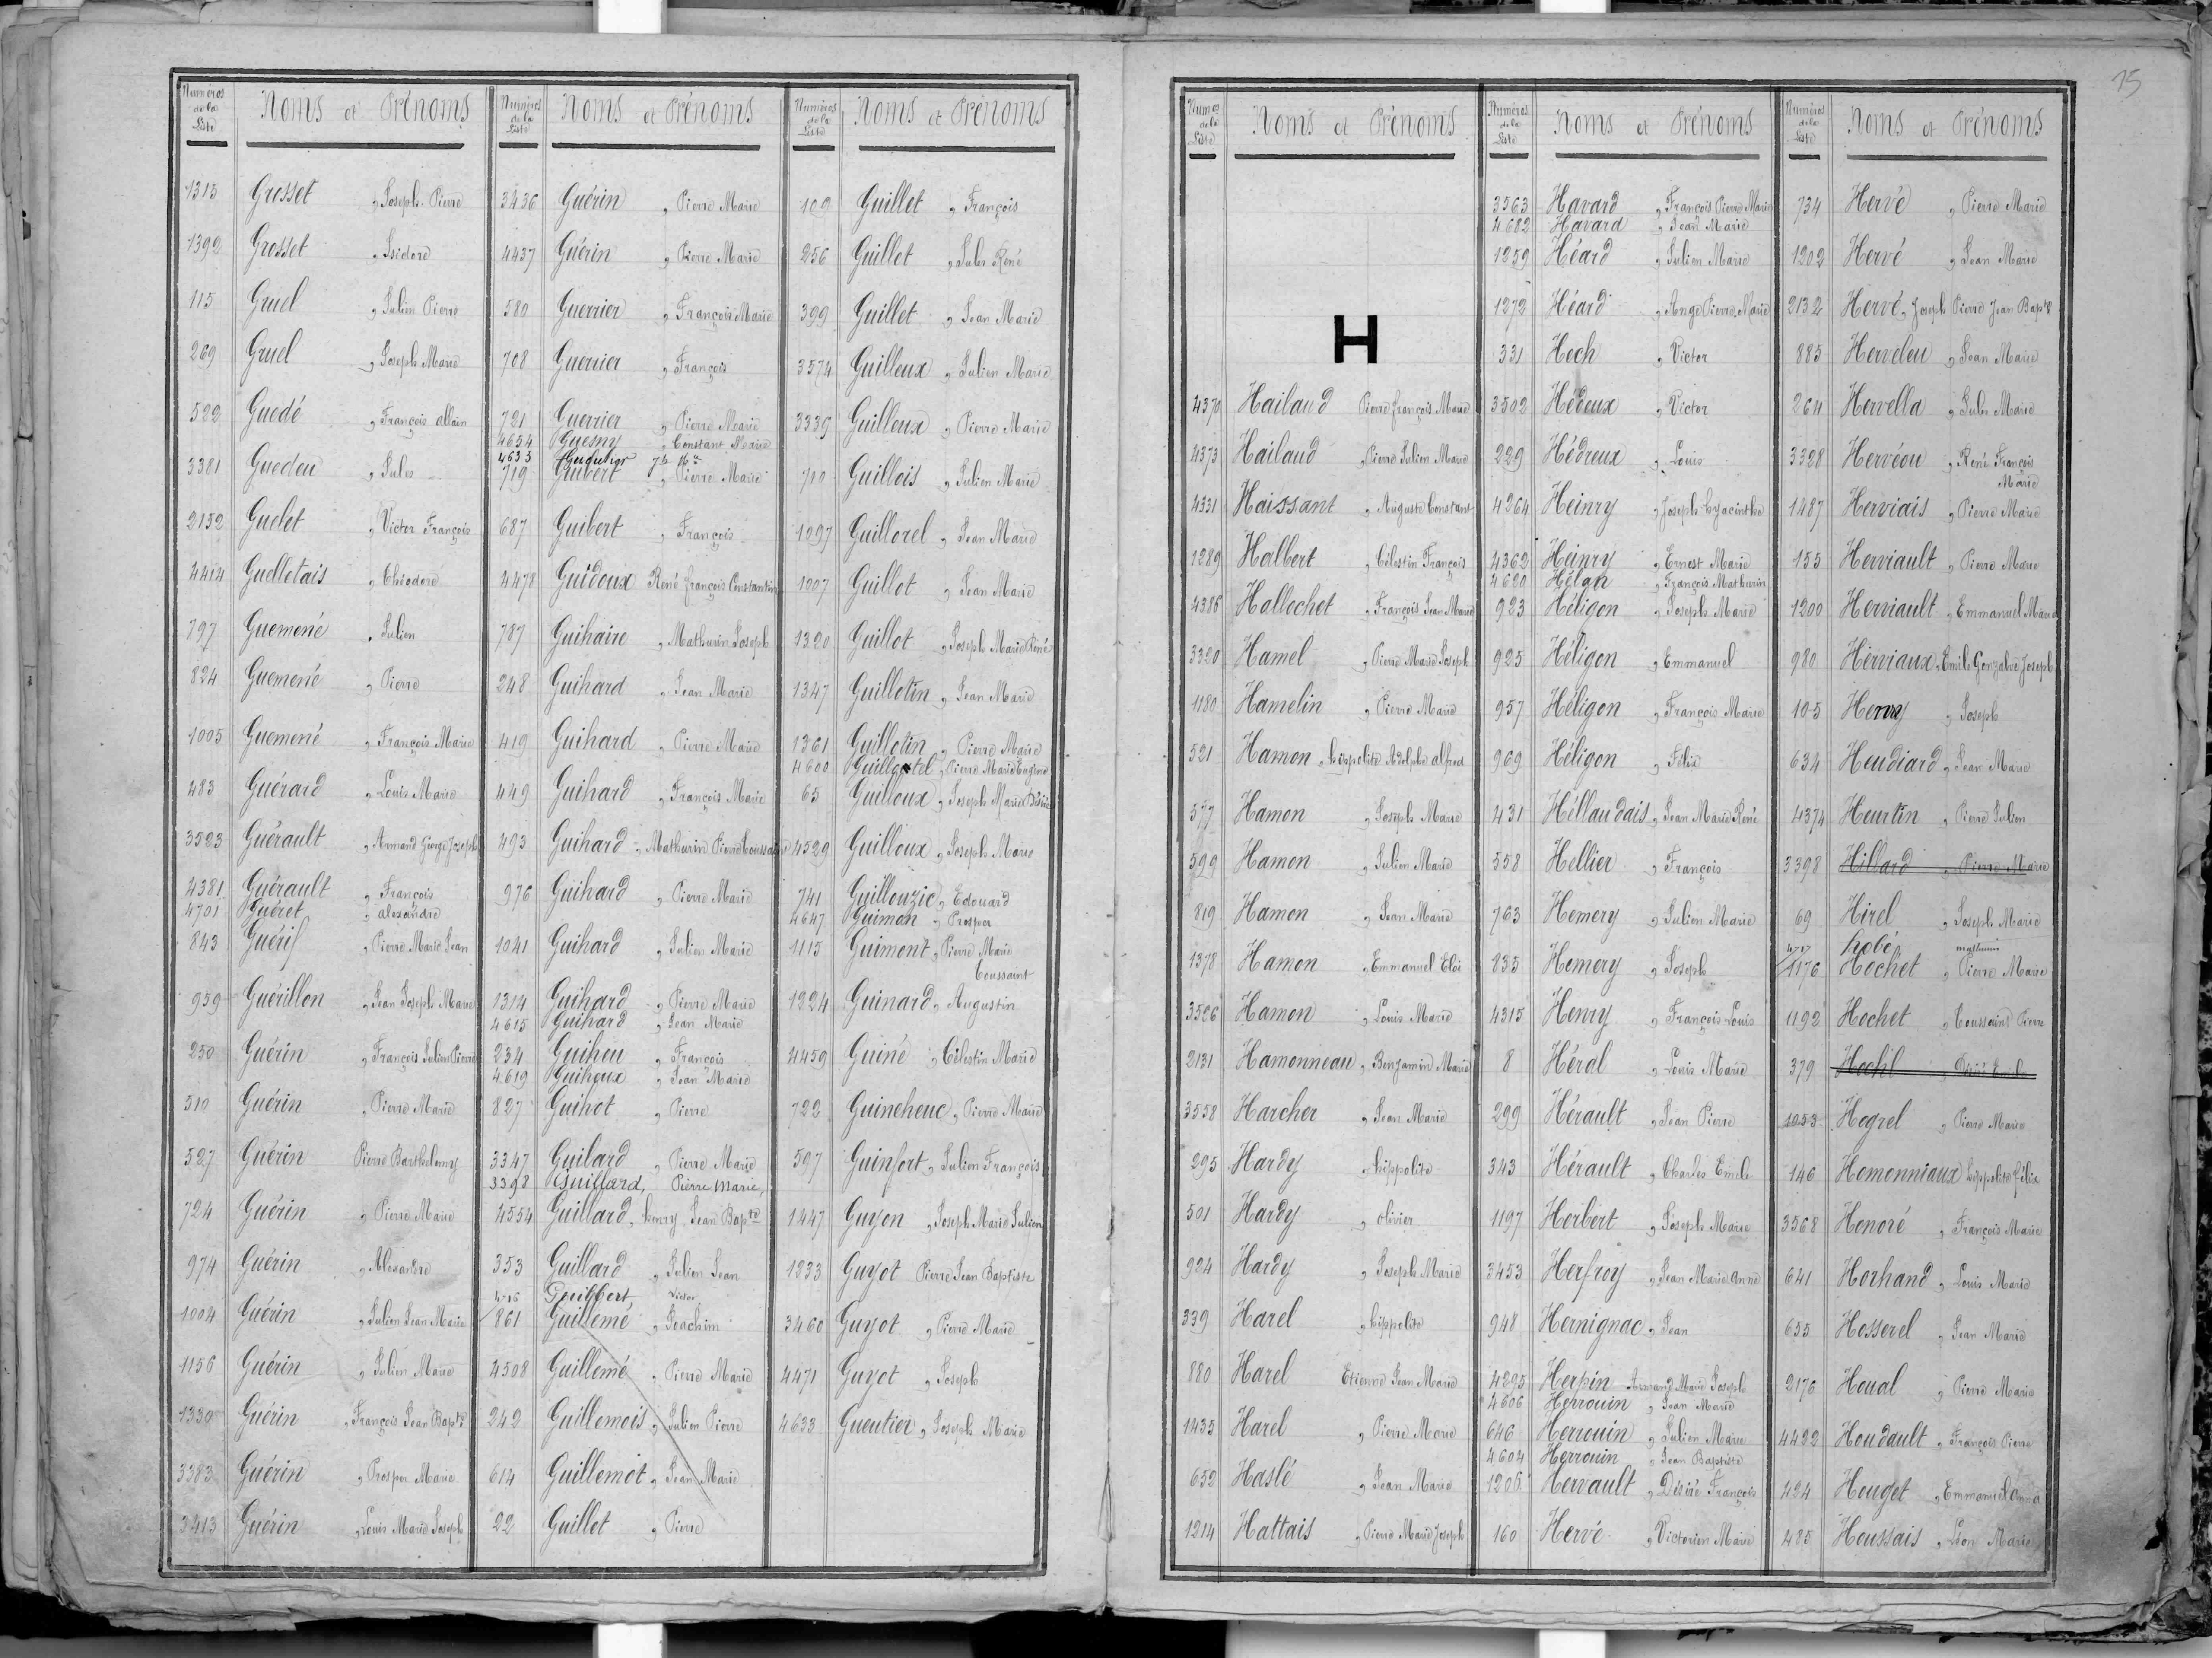 Numéros de la Liste Noms et Prénoms
1315 Grosset, Joseph Pierre
1392 Grosset, Isidore
115 Gruel, Julien Pierre
269 Gruel, Joseph Marie
522 Guedé, François allain
3381 Guedeu, Jules
2152 Guelet, Victor François
4414 Guelletais, Théodore
797 Guemené, Julien
824 Guemené, Pierre
1005 Guemené, François Marie
483 Guérard, Louis Marie
3523 Guérault, Armand George Joseph
4381 Guérault, François
4701 Guéret, alexandre
843 Guérif, Pierre Marie Jean
959 Guérillon, Jean Joseph Marie
250 Guérin, François Julien Pierre
510 Guérin, Pierre Marie
527 Guérin Pierre Barthelemy
724 Guérin, Pierre Marie
974 Guérin, Alexandre
1004 Guérin, Julien Jean Marie
1156 Guérin, Julien Marie
1330 Guérin, François Jean Bapte
3383 Guérin, Prosper Marie
3413 Guérin, Louis Marie Joseph
Numéros de la Liste Noms et Prénoms
3436 Guérin, Pierre Marie
4437 Guérin, Pierre Marie
580 Guerrier, François Marie
708 Guerrier, François
721 Guerrier, Pierre Marie
4654 Guesny, Constant Marie
4633
719 Guibert, Pierre Marie
687 Guibert, François
4478 Guidoux René françois Constantin
787 Guihaire, Mathurin Joseph
248 Guihard, Jean Marie
419 Guihard, Pierre Marie
449 Guihard, François Marie
493 Guihard, Mathurin Pierre Toussaint
976 Guihard, Pierre Marie
1041 Guihard, Julien Marie
1314 Guihard, Pierre Marie
4615 Guihard, Jean Marie
234 Guiheu, François
4619 Guiheux, Jean Marie
827 Guihot, Pierre
3347 Guilard, Pierre Marie
3398 Guillard, Pierre Marie,
4554 Guillard, henry Jean Bapte
353 Guillard, Julien Jean
4716 Guilbert Victor
861 Guillemé, Joachim
4508 Guillemé, Pierre Marie
242 Guillemois, Julien Pierre
614 Guillemot, Jean Marie
22 Guillet, Pierre
Numéros de la Liste Noms et Prénoms
109 Guillet, François
256 Guillet, Jules René
399 Guillet, Jean Marie
3574 Guilleux, Julien Marie
3339 Guilleux, Pierre Marie
710 Guillois, Julien Marie
1097 Guillorel, Jean Marie
1007 Guillot, Jean Marie
1320 Guillot, Joseph Marie René
1347 Guillotin, Jean Marie
1361 Guillotin, Pierre Marie
4600 Pierre Marie Eugène
65 Guilloux, Joseph Marie Désiré
4529 Guilloux, Joseph Marie
741 Guillouzic, Edouard
4647 Guimon, Prosper
1115 Guimont, Pierre Marie
Toussaint
1224 Guinard, Augustin
4459 Guiné, Célestin Marie
722 Guineheuc, Pierre Marie
597 Guinfort, Julien François
1447 Guyon, Joseph Marie Julien
1233 Guyot Pierre Jean Baptiste
3460 Guyot, Pierre Marie
4471 Guyot, Joseph
4633 Gueutier, Joseph Marie
15
Numéros de la Liste Noms et Prénoms
H
4370 Hailaud Pierre françois Marie
4373 Hailaud, Pierre Julien Marie
4331 Haissant, Auguste Constant
1289 Halbert, Célestin François
4386 Hallochet, François Jean Marie
3320 Hamel, Pierre Marie Joseph
1180 Hamelin, Pierre Marie
521 Hamon, hippolite Adolphe alfred
577 Hamon, Joseph Marie
599 Hamon, Julien Marie
819 Hamon, Jean Marie
1378 Hamon, Emmanuel Eloi
3526 Hamon, Louis Marie
2131 Hamonneau, Benjamin Marie
3558 Harcher, Jean Marie
295 Hardy, hippolite
501 Hardy, olivier
924 Hardy, Joseph Marie
339 Harel, hippolite
880 Harel Etienne Jean Marie
1435 Harel, Pierre Marie
652 Haslé, Jean Marie
1214 Hattais, Pierre Marie Joseph
Numéros de la Liste Noms et Prénoms
3563 Havard, François Pierre Marie
4682 Havard, Jean Marie
1259 Héard, Julien Marie
1272 Héard, Ange Pierre Marie
331 Hech, Victor
3502 Hédeux, Victor
229 Hédreux, Louis
4264 Heinry, Joseph hyacinthe
4362 Heinry, Ernest Marie
4620 Hélan, François Mathurin
923 Héligon, Joseph Marie
925 Héligon, Emmanuel
957 Héligon, François Marie
969 Héligon, Félix
431 Héllaudais, Jean Marie René
558 Hellier, François
763 Hemery, Julien Marie
835 Hemery, Joseph
4315 Henry, François Louis
8 Héral, Louis Marie
299 Hérault, Jean Pierre
343 Hérault, Charles Emile
1197 Herbert, Joseph Marie
3453 Herfroy, Jean Marie Anne
948 Hernignac, Jean
4295 Herpin Armand Marie Joseph
4606 Herrouin, Jean Marie
646 Herrouin, Julien Marie
4604 Herrouin, Jean Baptiste
1206 Hervault, Désiré François
160 Hervé, Victorien Marie
Numéros de la Liste Noms et Prénoms
734 Hervé, Pierre Marie
1202 Hervé, Jean Marie
2132 Hervé, Joseph Pierre Jean Bapte
885 Herveleu, Jean Marie
264 Hervella, Jules Marie
3328 Hervéou, René François
Marie
1487 Herviais, Pierre Marie
155 Herviault, Pierre Marie
1200 Herviault, Emmanuel Marie
980 Herviaux, Emile Gonzalve Joseph
105 Hervy, Joseph
634 Heudiard, Jean Marie
4374 Heurtin, Pierre Julien
3398 Hillard, Pierre Marie
69 Hirel, Joseph Marie
4717 hobé mathurin
1176 Hochet, Pierre Marie
1192 Hochet, Toussaint Pierre
379 Hochil, Désiré Emile
1053 Hogrel, Pierre Marie
146 Homonniaux hippolite félix
3568 Honoré, François Marie
641 Horhand, Louis Marie
655 Hosserel, Jean Marie
2176 Houal, Pierre Marie
4422 Houdault, François Pierre
424 Houget, Emmanuel Anna
485 Houssais, Léon Marie